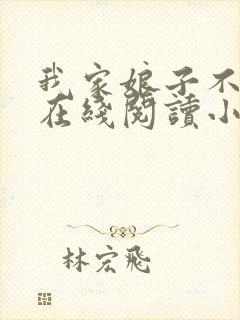 我家娘子不
在綫閱讀小
林宏飛